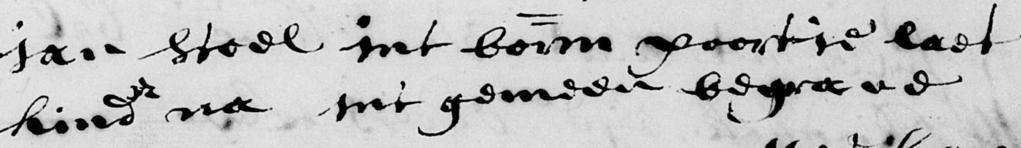 jan stoel int bomm poortje laet
kinder na int gemeen begrave